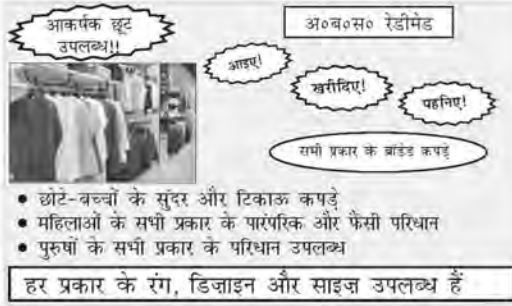 आकर्षक छूट
उपलब्ध!!
अ०ब०स० रेडीमेड
आइए!
खरीदिए!
पहनिए!
सभी प्रकार के ब्रांडेड कपड़े
• छोटे-बच्चों के सुंदर और टिकाऊ कपड़े
• महिलाओं के सभी प्रकार के पारंपरिक और फैंसी परिधान
• पुरुषों के सभी प्रकार के परिधान उपलब्ध
हर प्रकार के रंग, डिज़ाइन और साइज़ उपलब्ध हैं